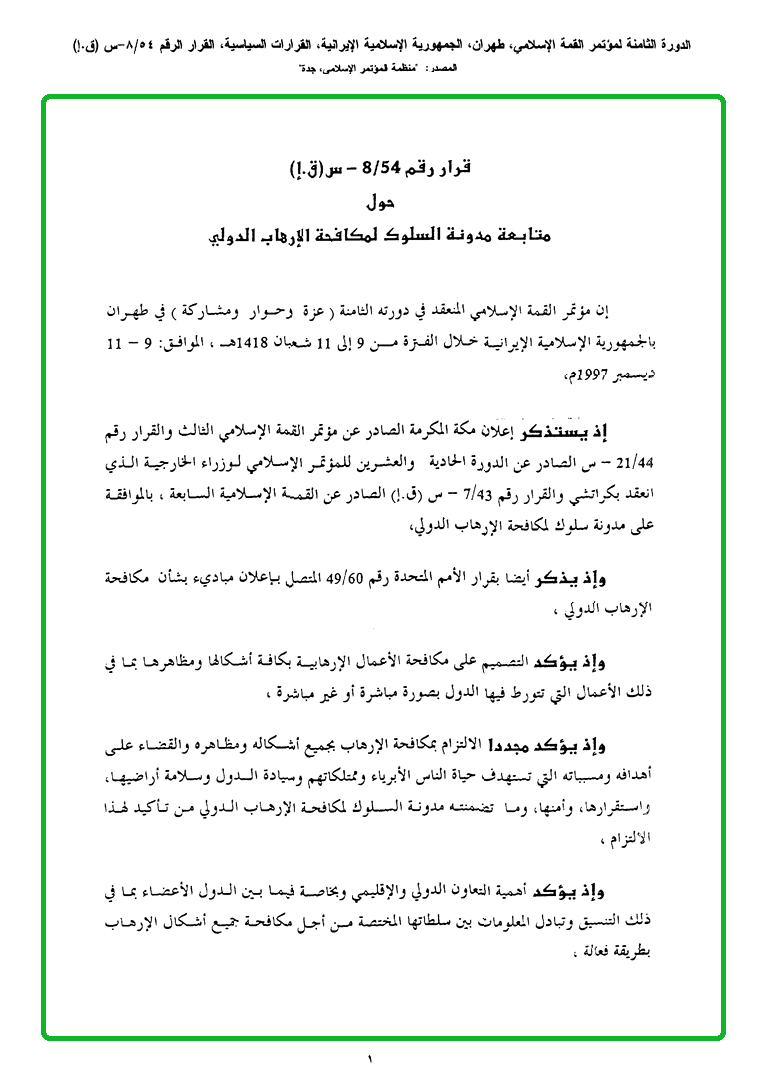 الدورة الثامنة لمؤتمر القمة الإسلامي، طهران، الجمهورية الإسلامية الإيرانية، القرارات السياسية، القرار الرقم ٨/٥٤-س (ق.إ)
المصدر: "منظمة المؤتمر الإسلامي، جدة"
قرار رقم 8/54 – س (ق.إ)
حول
متابعة مدونة السلوك لمكافحة الإرهاب الدولي
إن مؤتمر القمة الإسلامي المنعقد في دورته الثامنة ( عزة وحوار ومشاركة ) في طهران
بالجمهورية الإسلامية الإيرانية خلال الفترة من 9 إلى 11 شعبان 1418هـ ، الموافق: 9 – 11
ديسمبر 1997م،
إذ يستذكر إعلان مكة المكرمة الصادر عن مؤتمر القمة الإسلامي الثالث والقرار رقم
21/44 – س الصادر عن الدورة الحادية والعشرين للمؤتمر الإسلامي لوزراء الخارجية الذي
انعقد بكراتشي والقرار رقم 7/43 – س (ق.إ) الصادر عن القمة الإسلامية السابعة ، بالموافقة
على مدونة سلوك لمكافحة الإرهاب الدولي،
وإذ يذكر أيضا بقرار الأمم المتحدة رقم 49/60 المتصل بإعلان مباديء بشأن مكافحة
الإرهاب الدولي ،
وإذ يؤكد التصميم على مكافحة الأعمال الإرهابية بكافة أشكالها ومظاهرها بما في
ذلك الأعمال التي تتورط فيها الدول بصورة مباشرة أو غير مباشرة ،
وإذ يؤكد مجددا الالتزام بمكافحة الإرهاب بجميع أشكاله ومظاهره والقضاء على
أهدافه ومسبباته التي تستهدف حياة الناس الأبرياء وممتلكاتهم وسيادة الدول وسلامة أراضيها،
واستقرارها، وأمنها، وما تضمنته مدونة السلوك لمكافحة الإرهاب الدولي من تأكيد لهذا
الالتزام ،
وإذ يؤكد أهمية التعاون الدولي والإقليمي وبخاصة فيما بين الدول الأعضاء بما في
ذلك التنسيق وتبادل المعلومات بين سلطاتها المختصة من أجل مكافحة جميع أشكال الإرهاب
بطريقة فعالة ،
١